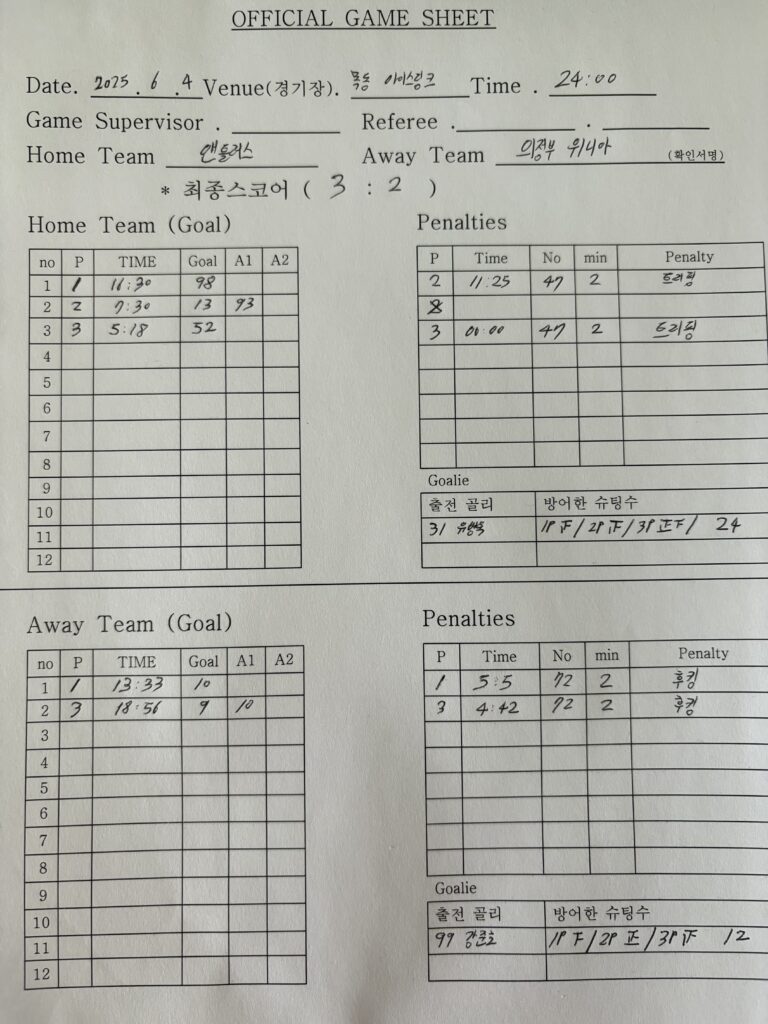 OFFICIAL GAME SHEET
Date. 2025 . 6 . 4 Venue(경기장). 목동 아이스링크 Time . 24:00
Game Supervisor . Referee . .
Home Team 앤틀러스 Away Team 의정부 위니아 (확인서명)
* 최종스코어 ( 3 : 2 )
Home Team (Goal)
no P TIME Goal A1 A2
1 1 11:30 98
2 2 7:30 13 93
3 3 5:18 52
4
5
6
7
8
9
10
11
12
Penalties
P Time No min Penalty
2 11:25 47 2 트리핑
3 00:00 47 2 트리핑
Goalie
출전 골리 방어한 슈팅수
31 1P 正 / 2P 正 / 3P 正 / 24
Away Team (Goal)
no P TIME Goal A1 A2
1 1 13:33 10
2 3 18:56 9 10
3
4
5
6
7
8
9
10
11
12
Penalties
P Time No min Penalty
1 5:5 72 2 후킹
3 4:42 72 2 후킹
Goalie
출전 골리 방어한 슈팅수
99 강준호 1P 下 / 2P 正 / 3P 正 12